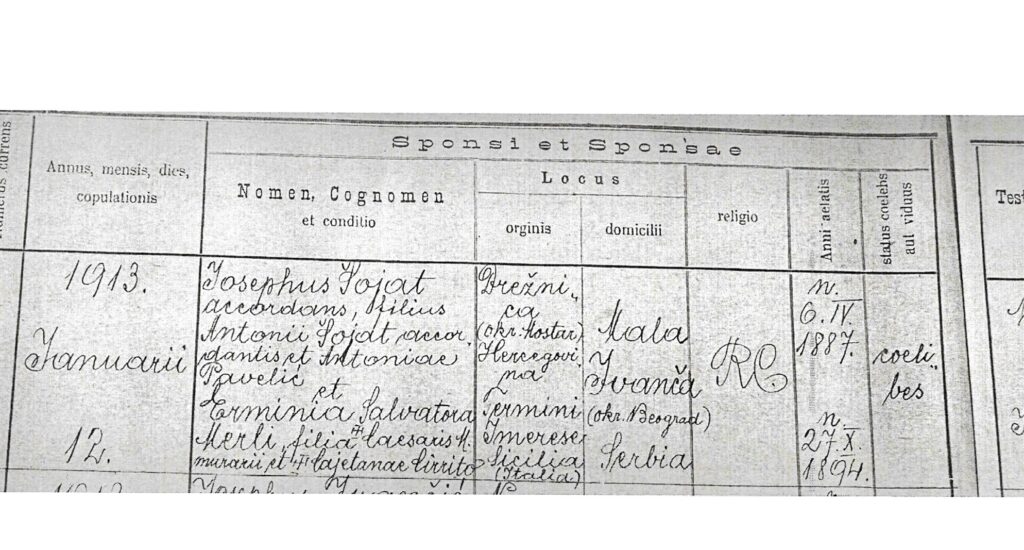 Numerus currens
Annus, mensis, dies,
copulationis
Sponsi et Sponsae
Nomen, Cognomen
et conditio
Locus
orginis
domicilii
religio
Anni aelatis
status coelebs
aut viduus
Test
1913.
Januarii
12.
Josephus Šojat
accordans, filius
Antonii Šojat accor„
dantis et Antoniae
Pavelić
et
Erminia Salvatora
Merli, filia † Caesaris M.
murarii, et † Cajetanae Cirrito
Drežni„
ca
(okr. Mostar)
Hercegovi„
na
Termini
Imerese
Sicilia
(Italia)
Mala
Ivanča
(okr. Beograd)
Serbia
RC.
n.
6. IV.
1887.
n.
27. X.
1894.
coeli„
bes